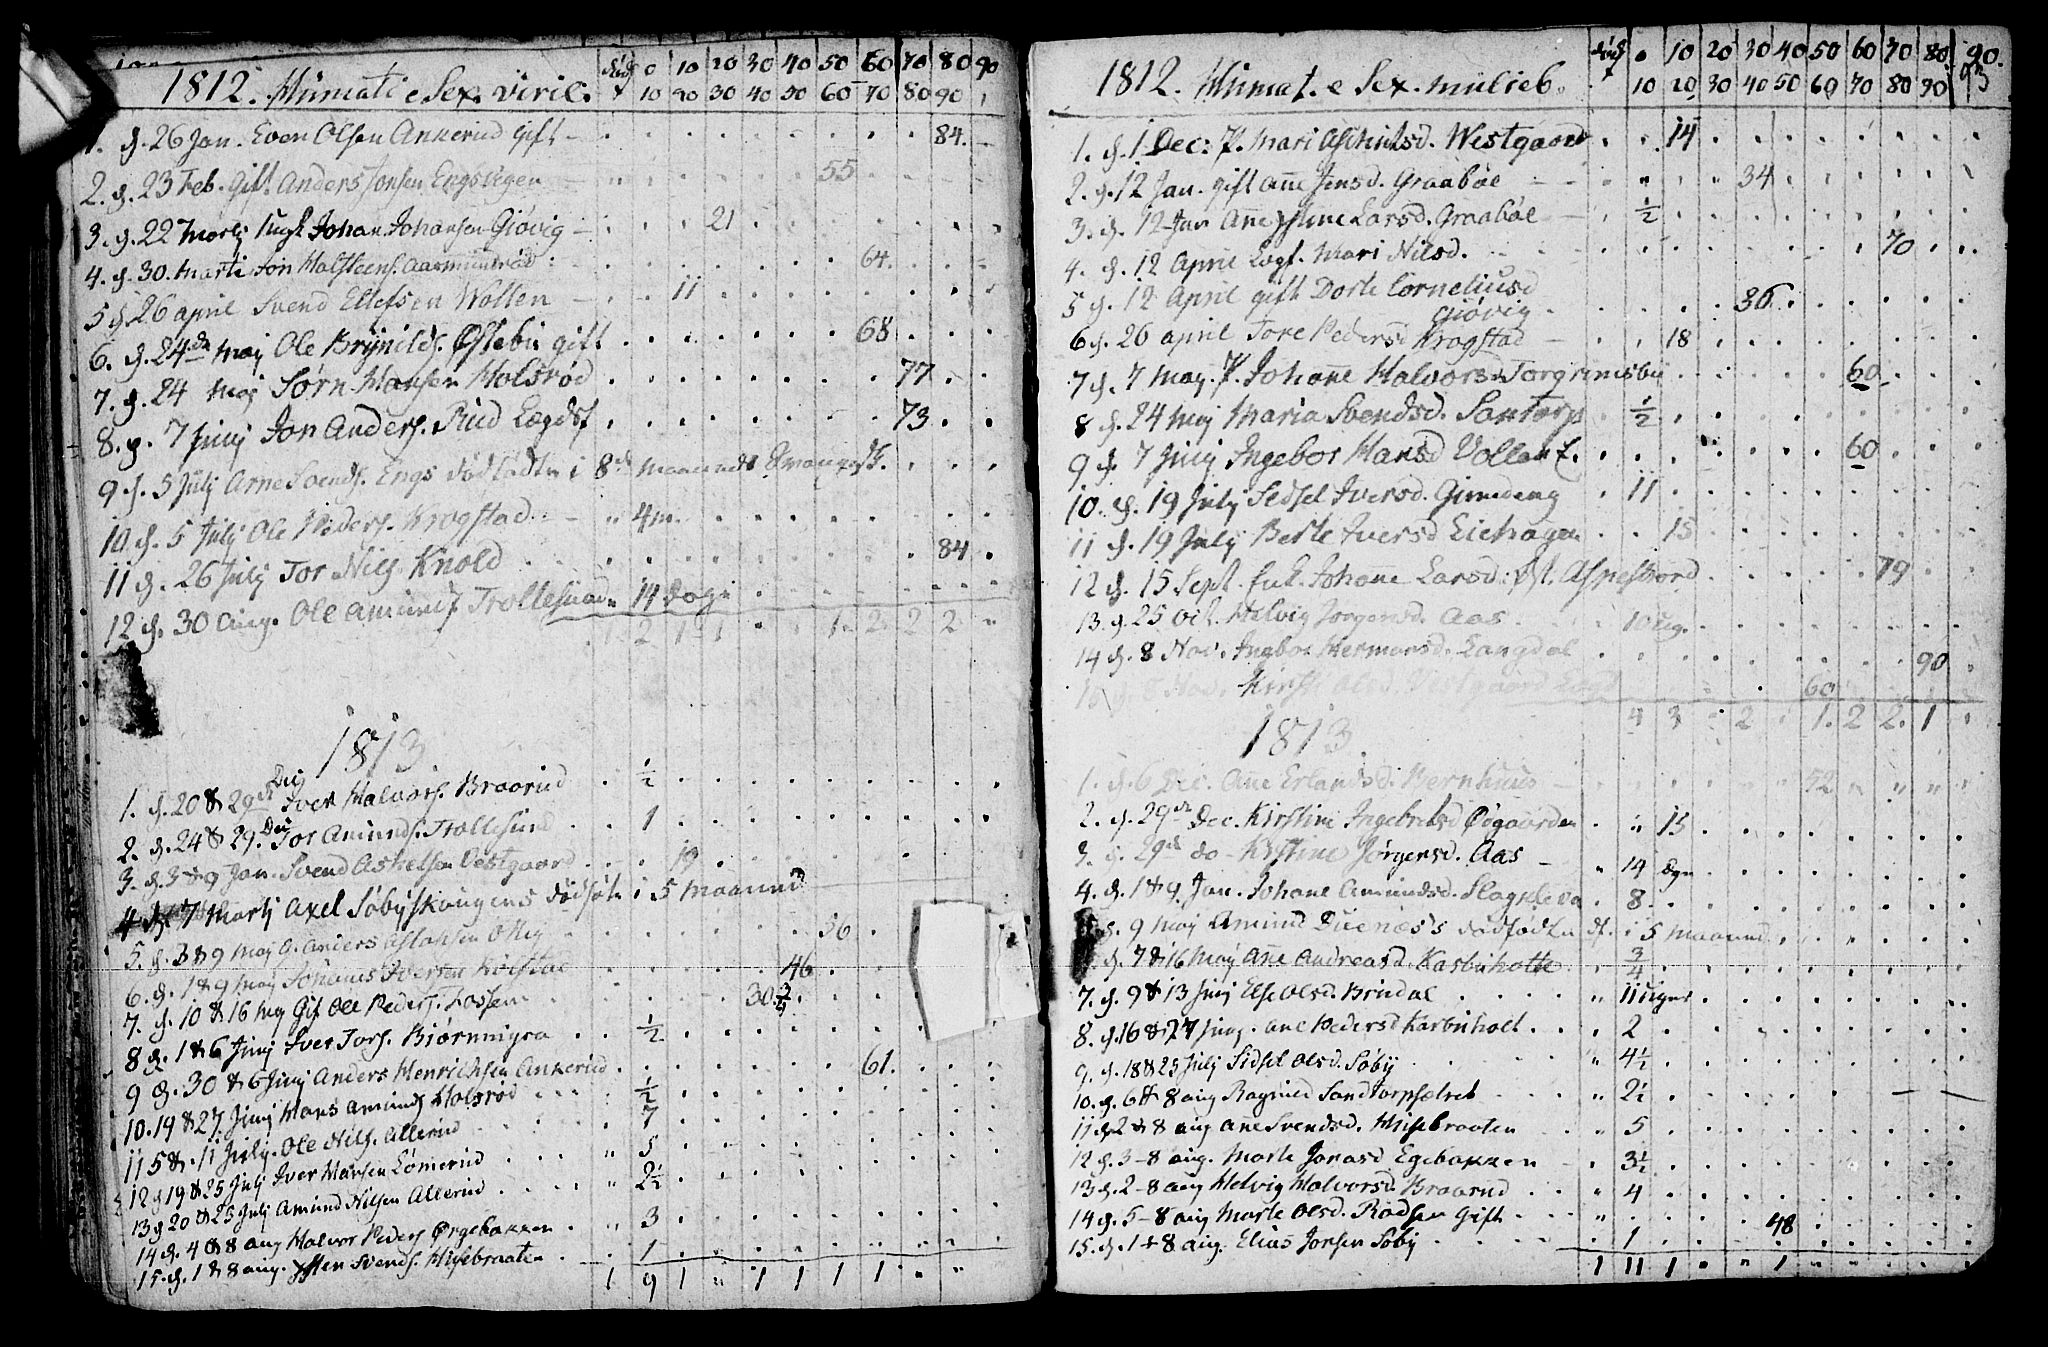 1812. Humati e Sex. Viril. 0 10 20 30 40 50 60 70 80 90
10 20 30 40 50 60 70 80 90
1. d. 26 Jan. Even Olsen Ankerud gift 84.
2. d. 23 Feb. gift Anders Jonsen Engsvegen 55
3. d. 22 Martj Johan Johansen Giøvig 21
4. d. 30. Marti Jon Halsteens. Aasmundrød 64.
5 d. 26 april Svend Ellefsen Wollen 11
6. d. 24de Maj Ole Brynilds. Østebÿ gift 68
7. d. 24 Maj Sørn Hansen Holsrød 77
8. d. 7 Junj Jon Anders. Rud Lægdsf 73
9 d. 5 Julj Arne Svends. Engs dødfødt i 8de Maaneds Svangersk.
10 d. 5 Julj Ole Peders. Krogstad 4m.
11 d. 26 Julj Tor Nils. Knold 84
12 d. 30 Aug. Ole Amunds Trollesund 14 dage
1 2 1 1 1. 2 2 2
1813
1. d. 20 & 29de Dec Iver Halvors. Braarud ½
2. d. 24 & 29. Dec Tor Amunds. Trollesund 1
3. d. 3 & 9 Jan. Svend Askelsen Vestgaard 19
4 d. 7 Martj Axel Søbyskougens dødfødt i 5 Maaned
5. d. 3 & 9 Maj G. Anders Aslaksen 56
6. d. 1 & 9 Maj Johanes Iversen 46
7. d. 10 & 16 Maj Gift Ole Peders. Fossem 30
8 d. 1 & 6 Junj Iver Tors. Biørnmyra ½
9 d. 30 & 6 Junj Anders Henrichsen Ankerud 61.
10. 19 & 27 Junj Hans Amunds Holsrød ½
11 5 & 11 Julj. Ole Nils. Allerud 7
12 d 19 & 25 Julj Iver Hansen Lømerud 5
13 d 20 & 25 Julj Amund Nilsen Allerud 2½
14 d. 4 & 8 aug Halvor Peders Ørgebakken 3
15. d. 1 & 8 aug. Svends. Husebraaten 1
1 9 1 " 1 1 1 1 " "
1812. Humat. e Sex. mulieb. 0 10 20 30 40 50 60 70 80 90.
10 20 30 40 50 60 70 80 90
1. d. 1 Dec: P. Mari Westgaard 14
2. d. 12 Jan. gift Anne Jensd. Graabøe 34
3. d. 12 Jan Anne Larsd. Graabøe ½
4. d. 12 April Lægf. Mari Nilsd. 70
5 d. 12 April gift Dorte Corneliusd 36
Giøvig
6 d. 26 april Tore Pedersd Krogstad 18
7 d. 7 Maj. P. Johanne Halvorsd Torgrimsbÿ 60
8 d. 24 Maj Maria Svendsd. Santorp ½
9 d. 7 Junj Ingebor Hansd Vollen 60
10. d. 19 Julj Sedsel Iversd. Gimeleng 11
11 d. 19 Julj Berte Iversd Eichagen 15
12 d. 15 Sept. Enk. Johanne Larsd: Øst. Aspestrand 79
13. d. 25 Oct. Helvig Jørgensd. Aas 10 ug.
14 d. 8 Nov. Ingebor Hermansd. Langdal 90
15 d 8 Nov. Kirsti Olsd. Vestgaard 60
4 3 2 1. 2 2. 1
1813
1. d. 6 Dec. Ane Erlandsd. 52
2. d. 29de Dec. Kirstine Ingebretsd Øegaarden 15
3. d. 29de do Kistine Jørgensd. Aas 14 dage
4. d. 1 & 9. Jan. Johane Amundsd. 8
5. d. 9 Maj Amund Duenæs's dødfødte df. i 5 Maaned
d. 7 & 16 Maj Ane Andreasd. Kasbuholte ¾
7. d. 9 & 13 Junj Else Olsd. Brudal 11 uger
8. d. 16 & 27 Junj. Ane Pedersd Karbuholt 2
9. d. 18 & 25 Julj Sidsel Olsd. Søby 4½
10. d. 6 & 8 aug Ragnild Sandtorpseiet 2½
11 d 2 & 8 aug Ane Svendsd. Husebraaten 5
12 d. 3 - 8 aug. Marte Jonasd Egebakken 3½
13 d. 2 - 8 aug Helvig Halvorsd. Braarud 4
14 d. 5 - 8 aug Marte Olsd. Rødsen Gift 48
15. d. 1 + 8 aug. Elias Jonsen Søby 1
1 11 1 1